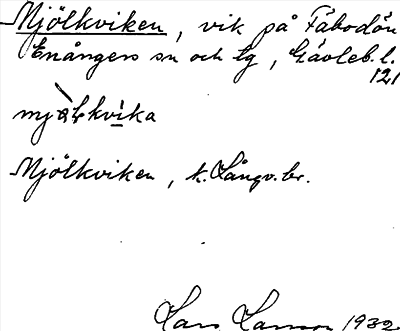 Mjölkviken, vik på Fäbodön
Enångers sn och tg, Gävleb. l.
121
mjölkvika
Mjölkviken, k. Långv. br.
Lars Larsson 1932